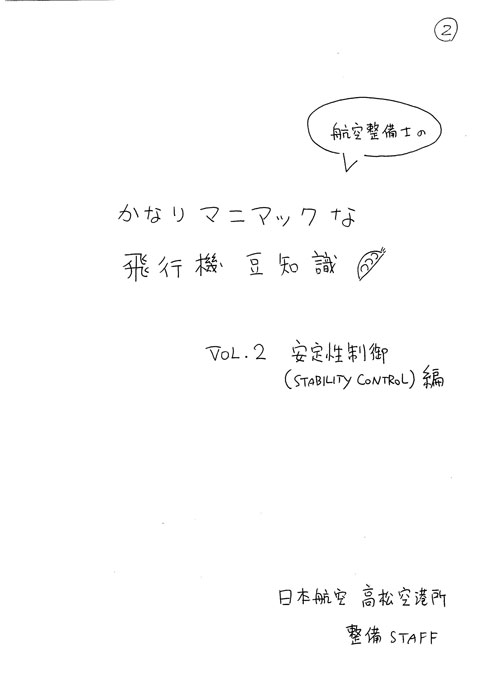 ②
航空整備士の
かなりマニアックな
飛行機 豆知識
VOL.2 安定性制御
(STABILITY CONTROL) 編
日本航空 高松空港所
整備 STAFF